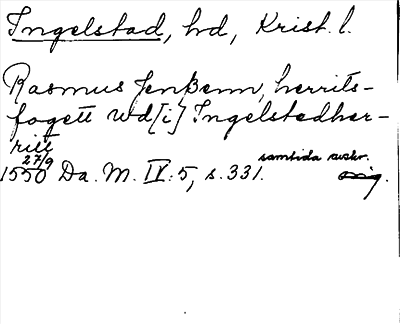 Ingelstad, hd, Krist. l.
Rasmus Jenßenn, herrits-
fogett wd[i] Ingelstedher-
ritt
27/9
1550 Da. M. IV: 5, s. 331. samtida avskr.
orig.